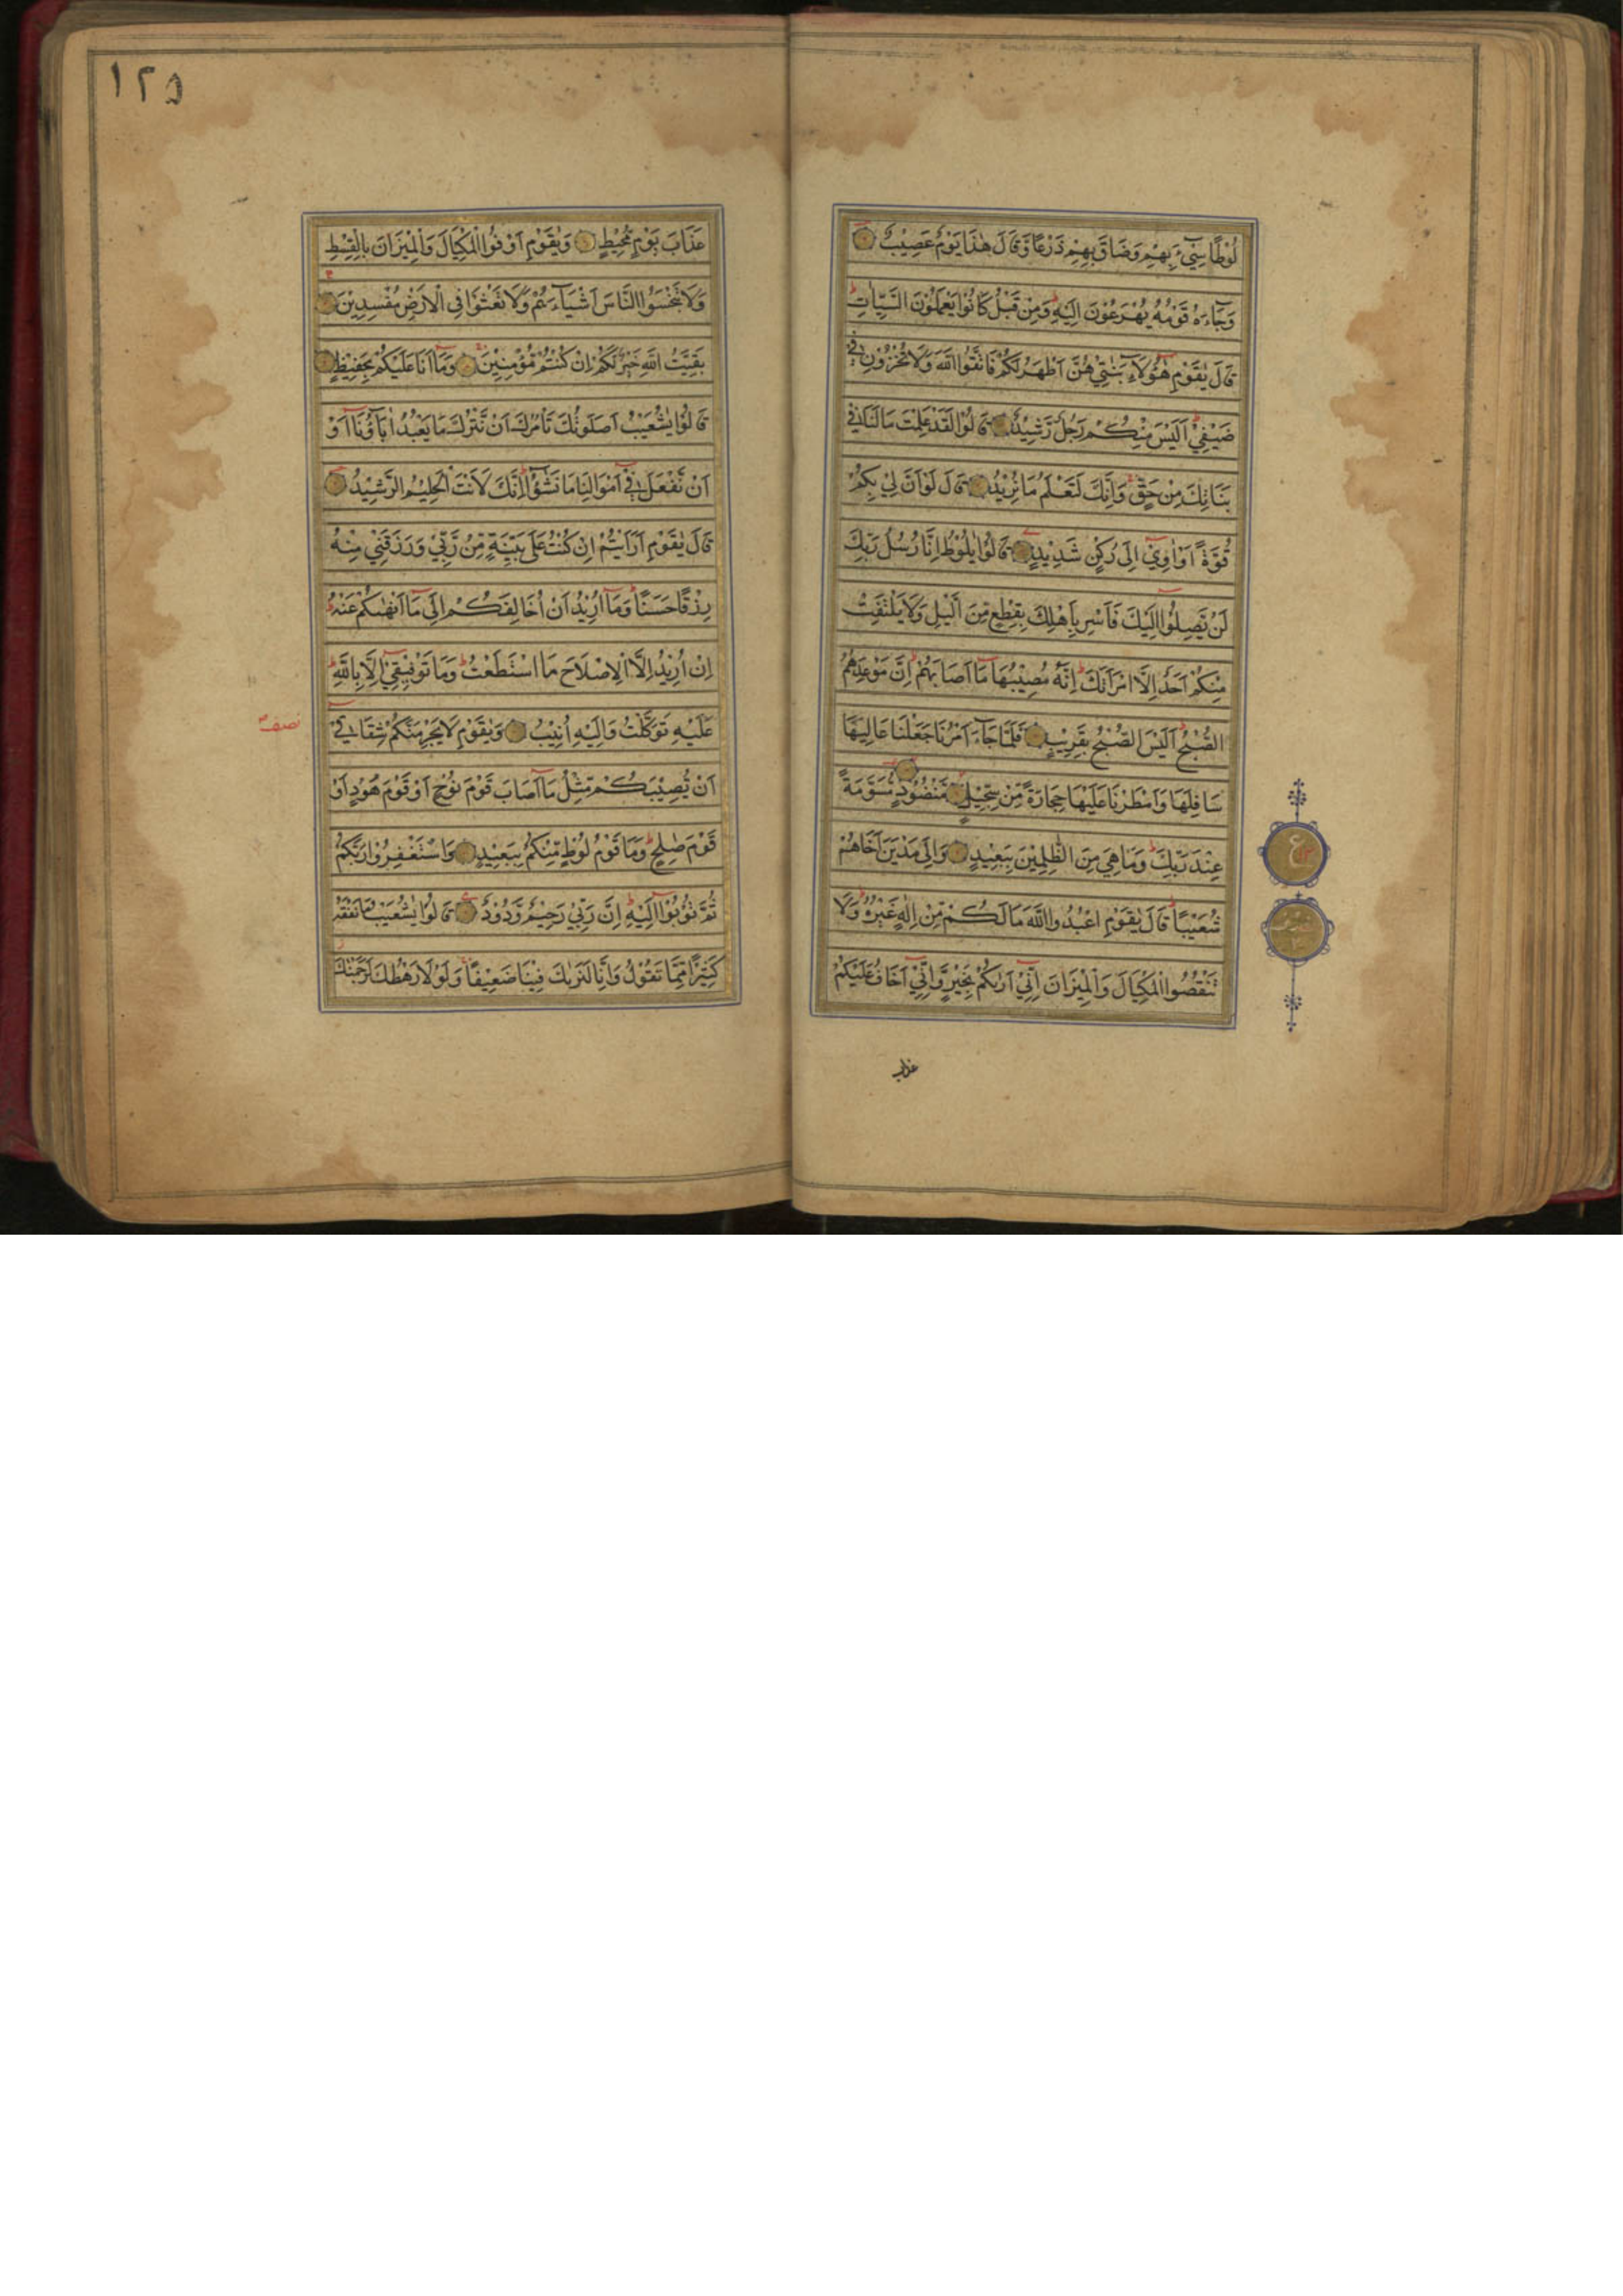 لُوْطًا سِيْٓءَ بِهِمْ وَضَاقَ بِهِمْ ذَرْعًا وَّقَالَ هٰذَا يَوْمٌ عَصِيْبٌ
وَجَآءَهٗ قَوْمُهٗ يُهْرَعُوْنَ اِلَيْهِ وَمِنْ قَبْلُ كَانُوْا يَعْمَلُوْنَ السَّيِّاٰتِ
قَالَ يٰقَوْمِ هٰٓؤُلَآءِ بَنٰتِيْ هُنَّ اَطْهَرُ لَكُمْ فَاتَّقُوا اللّٰهَ وَلَا تُخْزُوْنِ فِيْ
ضَيْفِيْ اَلَيْسَ مِنْكُمْ رَجُلٌ رَّشِيْدٌ قَالُوْا لَقَدْ عَلِمْتَ مَا لَنَا فِيْ
بَنَاتِكَ مِنْ حَقٍّ وَاِنَّكَ لَتَعْلَمُ مَا نُرِيْدُ قَالَ لَوْ اَنَّ لِيْ بِكُمْ
قُوَّةً اَوْ اٰوِيْٓ اِلٰى رُكْنٍ شَدِيْدٍ قَالُوْا يٰلُوْطُ اِنَّا رُسُلُ رَبِّكَ
لَنْ يَّصِلُوْٓا اِلَيْكَ فَاَسْرِ بِاَهْلِكَ بِقِطْعٍ مِّنَ الَّيْلِ وَلَا يَلْتَفِتْ
مِنْكُمْ اَحَدٌ اِلَّا امْرَاَتَكَ اِنَّهٗ مُصِيْبُهَا مَآ اَصَابَهُمْ اِنَّ مَوْعِدَهُمُ
الصُّبْحُ اَلَيْسَ الصُّبْحُ بِقَرِيْبٍ فَلَمَّا جَآءَ اَمْرُنَا جَعَلْنَا عَالِيَهَا
سَافِلَهَا وَاَمْطَرْنَا عَلَيْهَا حِجَارَةً مِّنْ سِجِّيْلٍ مَّنْضُوْدٍ مُّسَوَّمَةً
عِنْدَ رَبِّكَ وَمَا هِيَ مِنَ الظّٰلِمِيْنَ بِبَعِيْدٍ وَاِلٰى مَدْيَنَ اَخَاهُمْ
شُعَيْبًا قَالَ يٰقَوْمِ اعْبُدُوا اللّٰهَ مَا لَكُمْ مِّنْ اِلٰهٍ غَيْرُهٗ وَلَا
تَنْقُصُوا الْمِكْيَالَ وَالْمِيْزَانَ اِنِّيْٓ اَرٰىكُمْ بِخَيْرٍ وَّاِنِّيْٓ اَخَافُ عَلَيْكُمْ
عذاب
ع
١٢٥
عَذَابَ يَوْمٍ مُّحِيْطٍ وَيٰقَوْمِ اَوْفُوا الْمِكْيَالَ وَالْمِيْزَانَ بِالْقِسْطِ
وَلَا تَبْخَسُوا النَّاسَ اَشْيَآءَهُمْ وَلَا تَعْثَوْا فِى الْاَرْضِ مُفْسِدِيْنَ
بَقِيَّتُ اللّٰهِ خَيْرٌ لَّكُمْ اِنْ كُنْتُمْ مُّؤْمِنِيْنَ وَمَآ اَنَا عَلَيْكُمْ بِحَفِيْظٍ
قَالُوْا يٰشُعَيْبُ اَصَلٰوتُكَ تَاْمُرُكَ اَنْ نَّتْرُكَ مَا يَعْبُدُ اٰبَآؤُنَآ اَوْ
اَنْ نَّفْعَلَ فِيْٓ اَمْوَالِنَا مَا نَشٰٓؤُا اِنَّكَ لَاَنْتَ الْحَلِيْمُ الرَّشِيْدُ
قَالَ يٰقَوْمِ اَرَاَيْتُمْ اِنْ كُنْتُ عَلٰى بَيِّنَةٍ مِّنْ رَّبِّيْ وَرَزَقَنِيْ مِنْهُ
رِزْقًا حَسَنًا وَمَآ اُرِيْدُ اَنْ اُخَالِفَكُمْ اِلٰى مَآ اَنْهٰىكُمْ عَنْهُ
اِنْ اُرِيْدُ اِلَّا الْاِصْلَاحَ مَا اسْتَطَعْتُ وَمَا تَوْفِيْقِيْٓ اِلَّا بِاللّٰهِ
عَلَيْهِ تَوَكَّلْتُ وَاِلَيْهِ اُنِيْبُ وَيٰقَوْمِ لَا يَجْرِمَنَّكُمْ شِقَاقِيْٓ
اَنْ يُّصِيْبَكُمْ مِّثْلُ مَآ اَصَابَ قَوْمَ نُوْحٍ اَوْ قَوْمَ هُوْدٍ اَوْ
قَوْمَ صٰلِحٍ وَمَا قَوْمُ لُوْطٍ مِّنْكُمْ بِبَعِيْدٍ وَاسْتَغْفِرُوْا رَبَّكُمْ
ثُمَّ تُوْبُوْٓا اِلَيْهِ اِنَّ رَبِّيْ رَحِيْمٌ وَّدُوْدٌ قَالُوْا يٰشُعَيْبُ مَا نَفْقَهُ
كَثِيْرًا مِّمَّا تَقُوْلُ وَاِنَّا لَنَرٰىكَ فِيْنَا ضَعِيْفًا وَلَوْلَا رَهْطُكَ لَرَجَمْنٰكَ
نصف